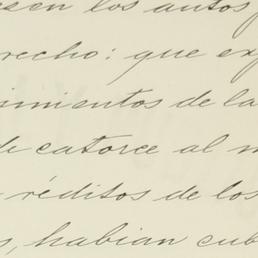 seen los autos
recho: que ex
imientos de la
de catorce al m
réditos de los
s, habian cub